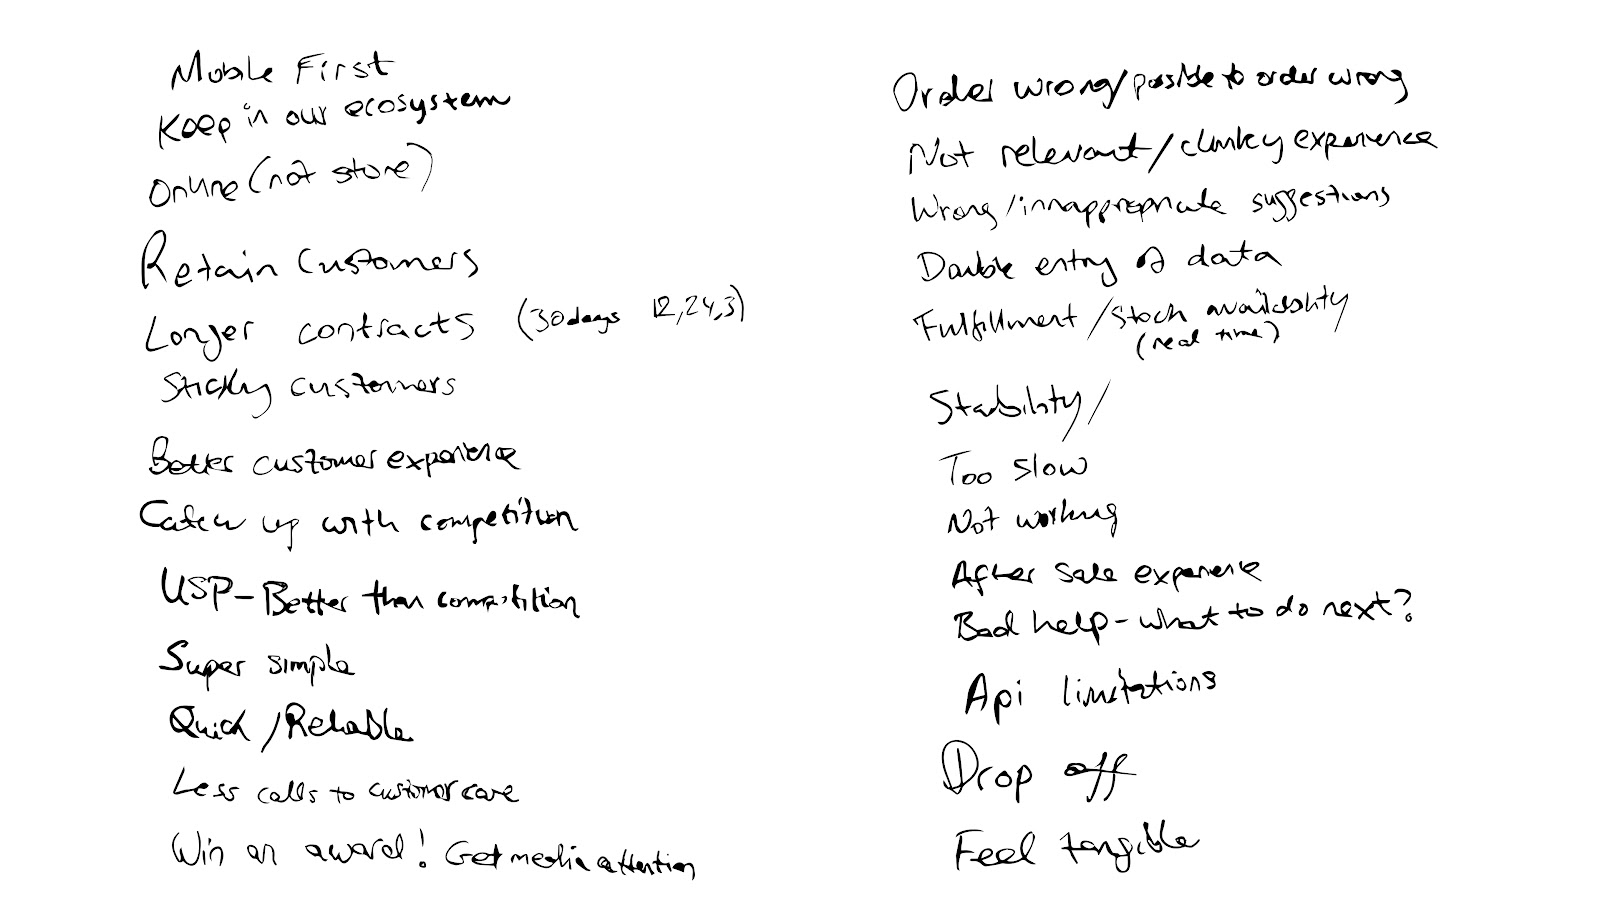 Mobile First
Keep in our ecosystem
Online (not store)
Retain Customers
Longer contracts (30 days 12,24,3)
Sticky customers
Better customer experience
Catch up with competition
USP - Better than competition
Super simple
Quick / Reliable
Less calls to customer care
Win an award! Get media attention
Order wrong/possible to order wrong
Not relevant / clunky experience
Wrong / innappropriate suggestions
Double entry of data
Fulfillment / Stock availability
(real time)
Stability /
Too slow
Not working
After sale experience
Bad help - what to do next?
Api limitations
Drop off
Feel tangible